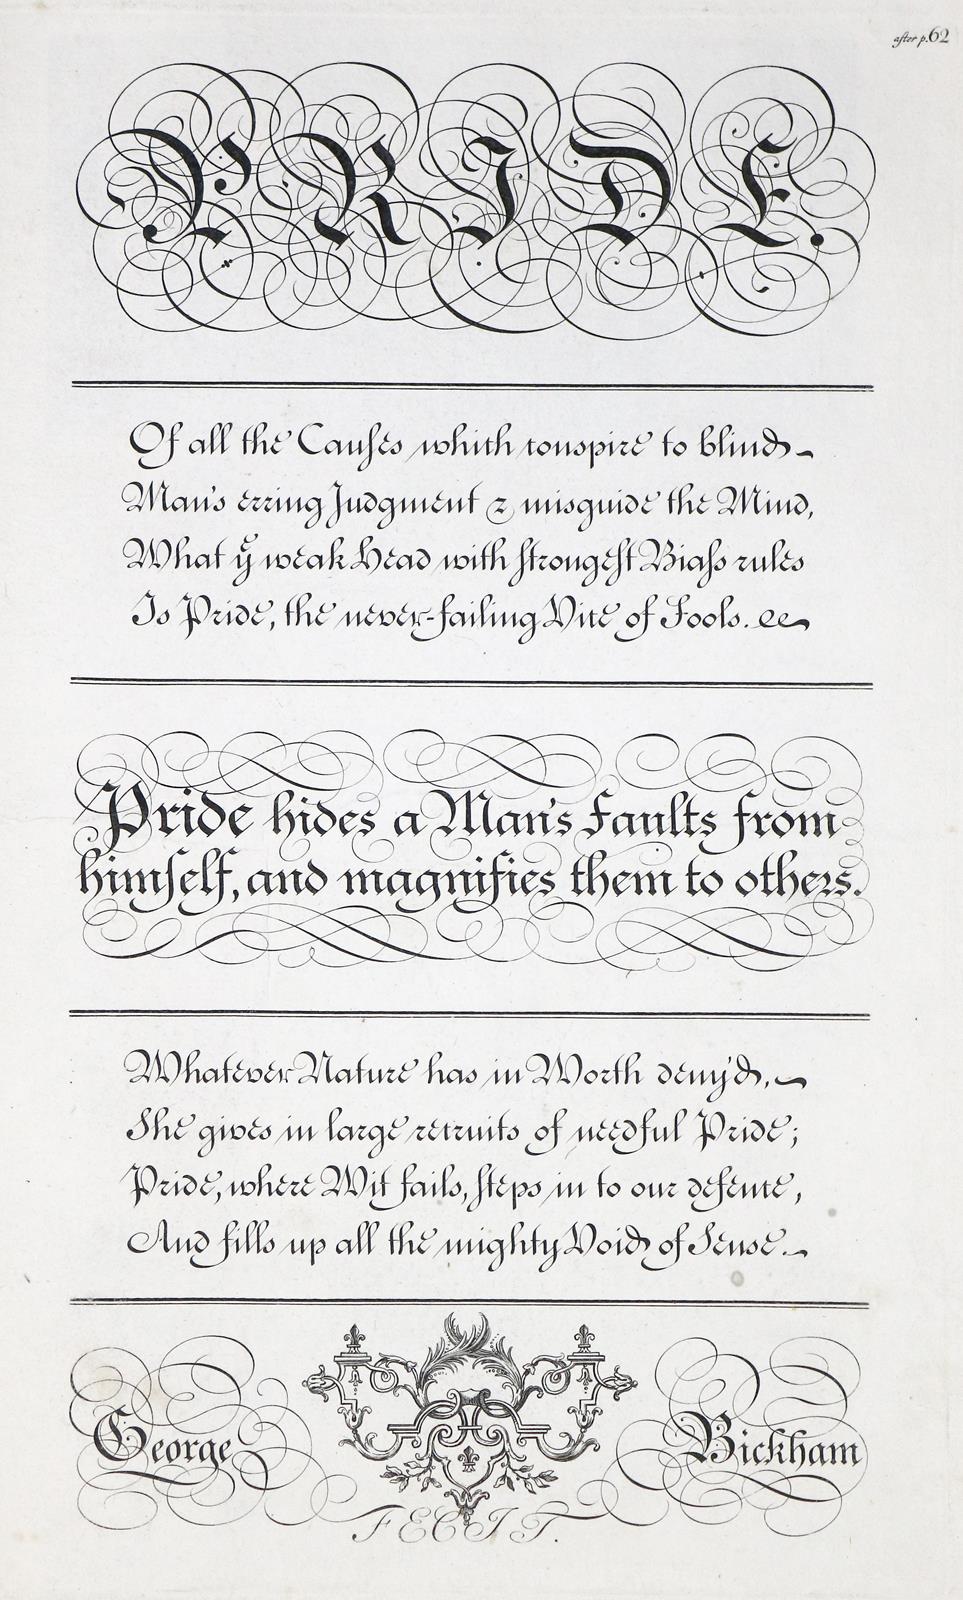 after p.62
PRIDE.
Of all the Cauſes which conspire to blind
Man's erring Judgment & misguide the Mind,
What yͤ weak Head with ſtrongeſt Biaſs rules
Is Pride, the never-failing Vice of Fools.
Pride hides a Man's Faults from
himſelf, and magnifies them to others.
Whatever Nature has in Worth deny'd,
She gives in large recruits of needful Pride;
Pride, where Wit fails, ſteps in to our defence,
And fills up all the mighty Void of Sense.
George Bickham
FECIT.